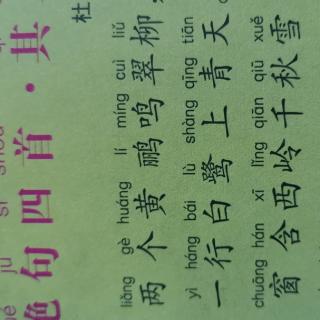 jué jù sì shǒu
绝句四首·其
杜
liǎng gè huáng lí míng cuì liǔ
两个黄鹂鸣翠柳
yì háng bái lù shàng qīng tiān
一行白鹭上青天
chuāng hán xī lǐng qiān qiū xuě
窗含西岭千秋雪